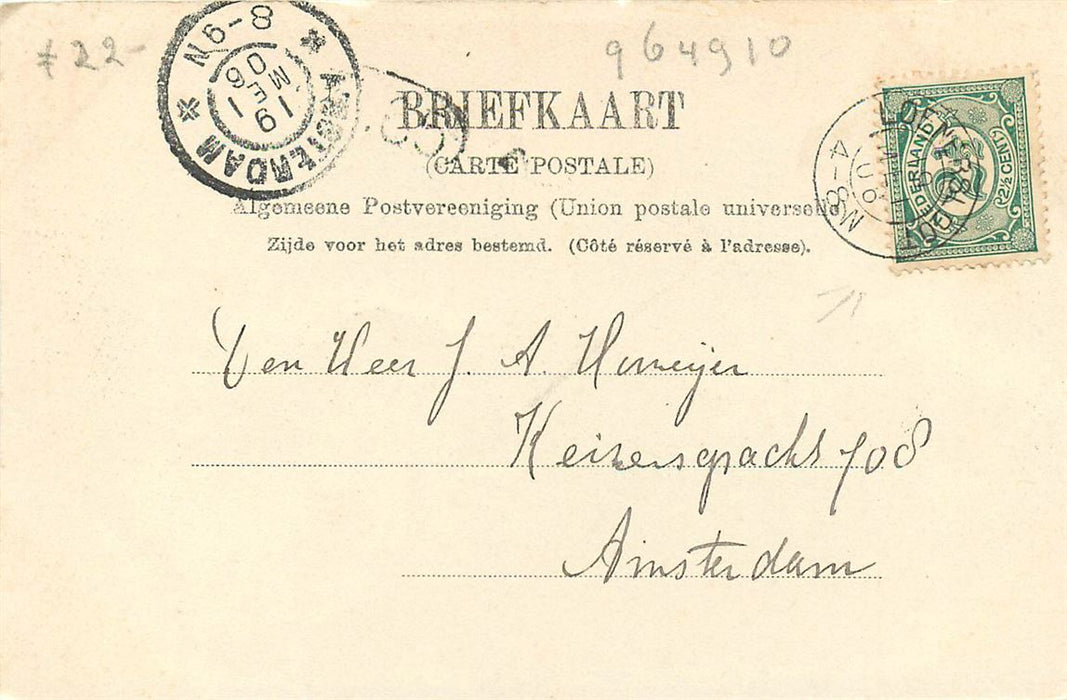 f 22-
964910
8-9N
19 MEI 06
AMSTERDAM
BRIEFKAART
(CARTE POSTALE)
Algemeene Postvereeniging (Union postale universelle)
Zijde voor het adres bestemd. (Côté réservé à l'adresse).
NEDERLAND
2½ CENT
M8-4
Den Heer J. A. Homeijer
Keizersgracht 708
Amsterdam